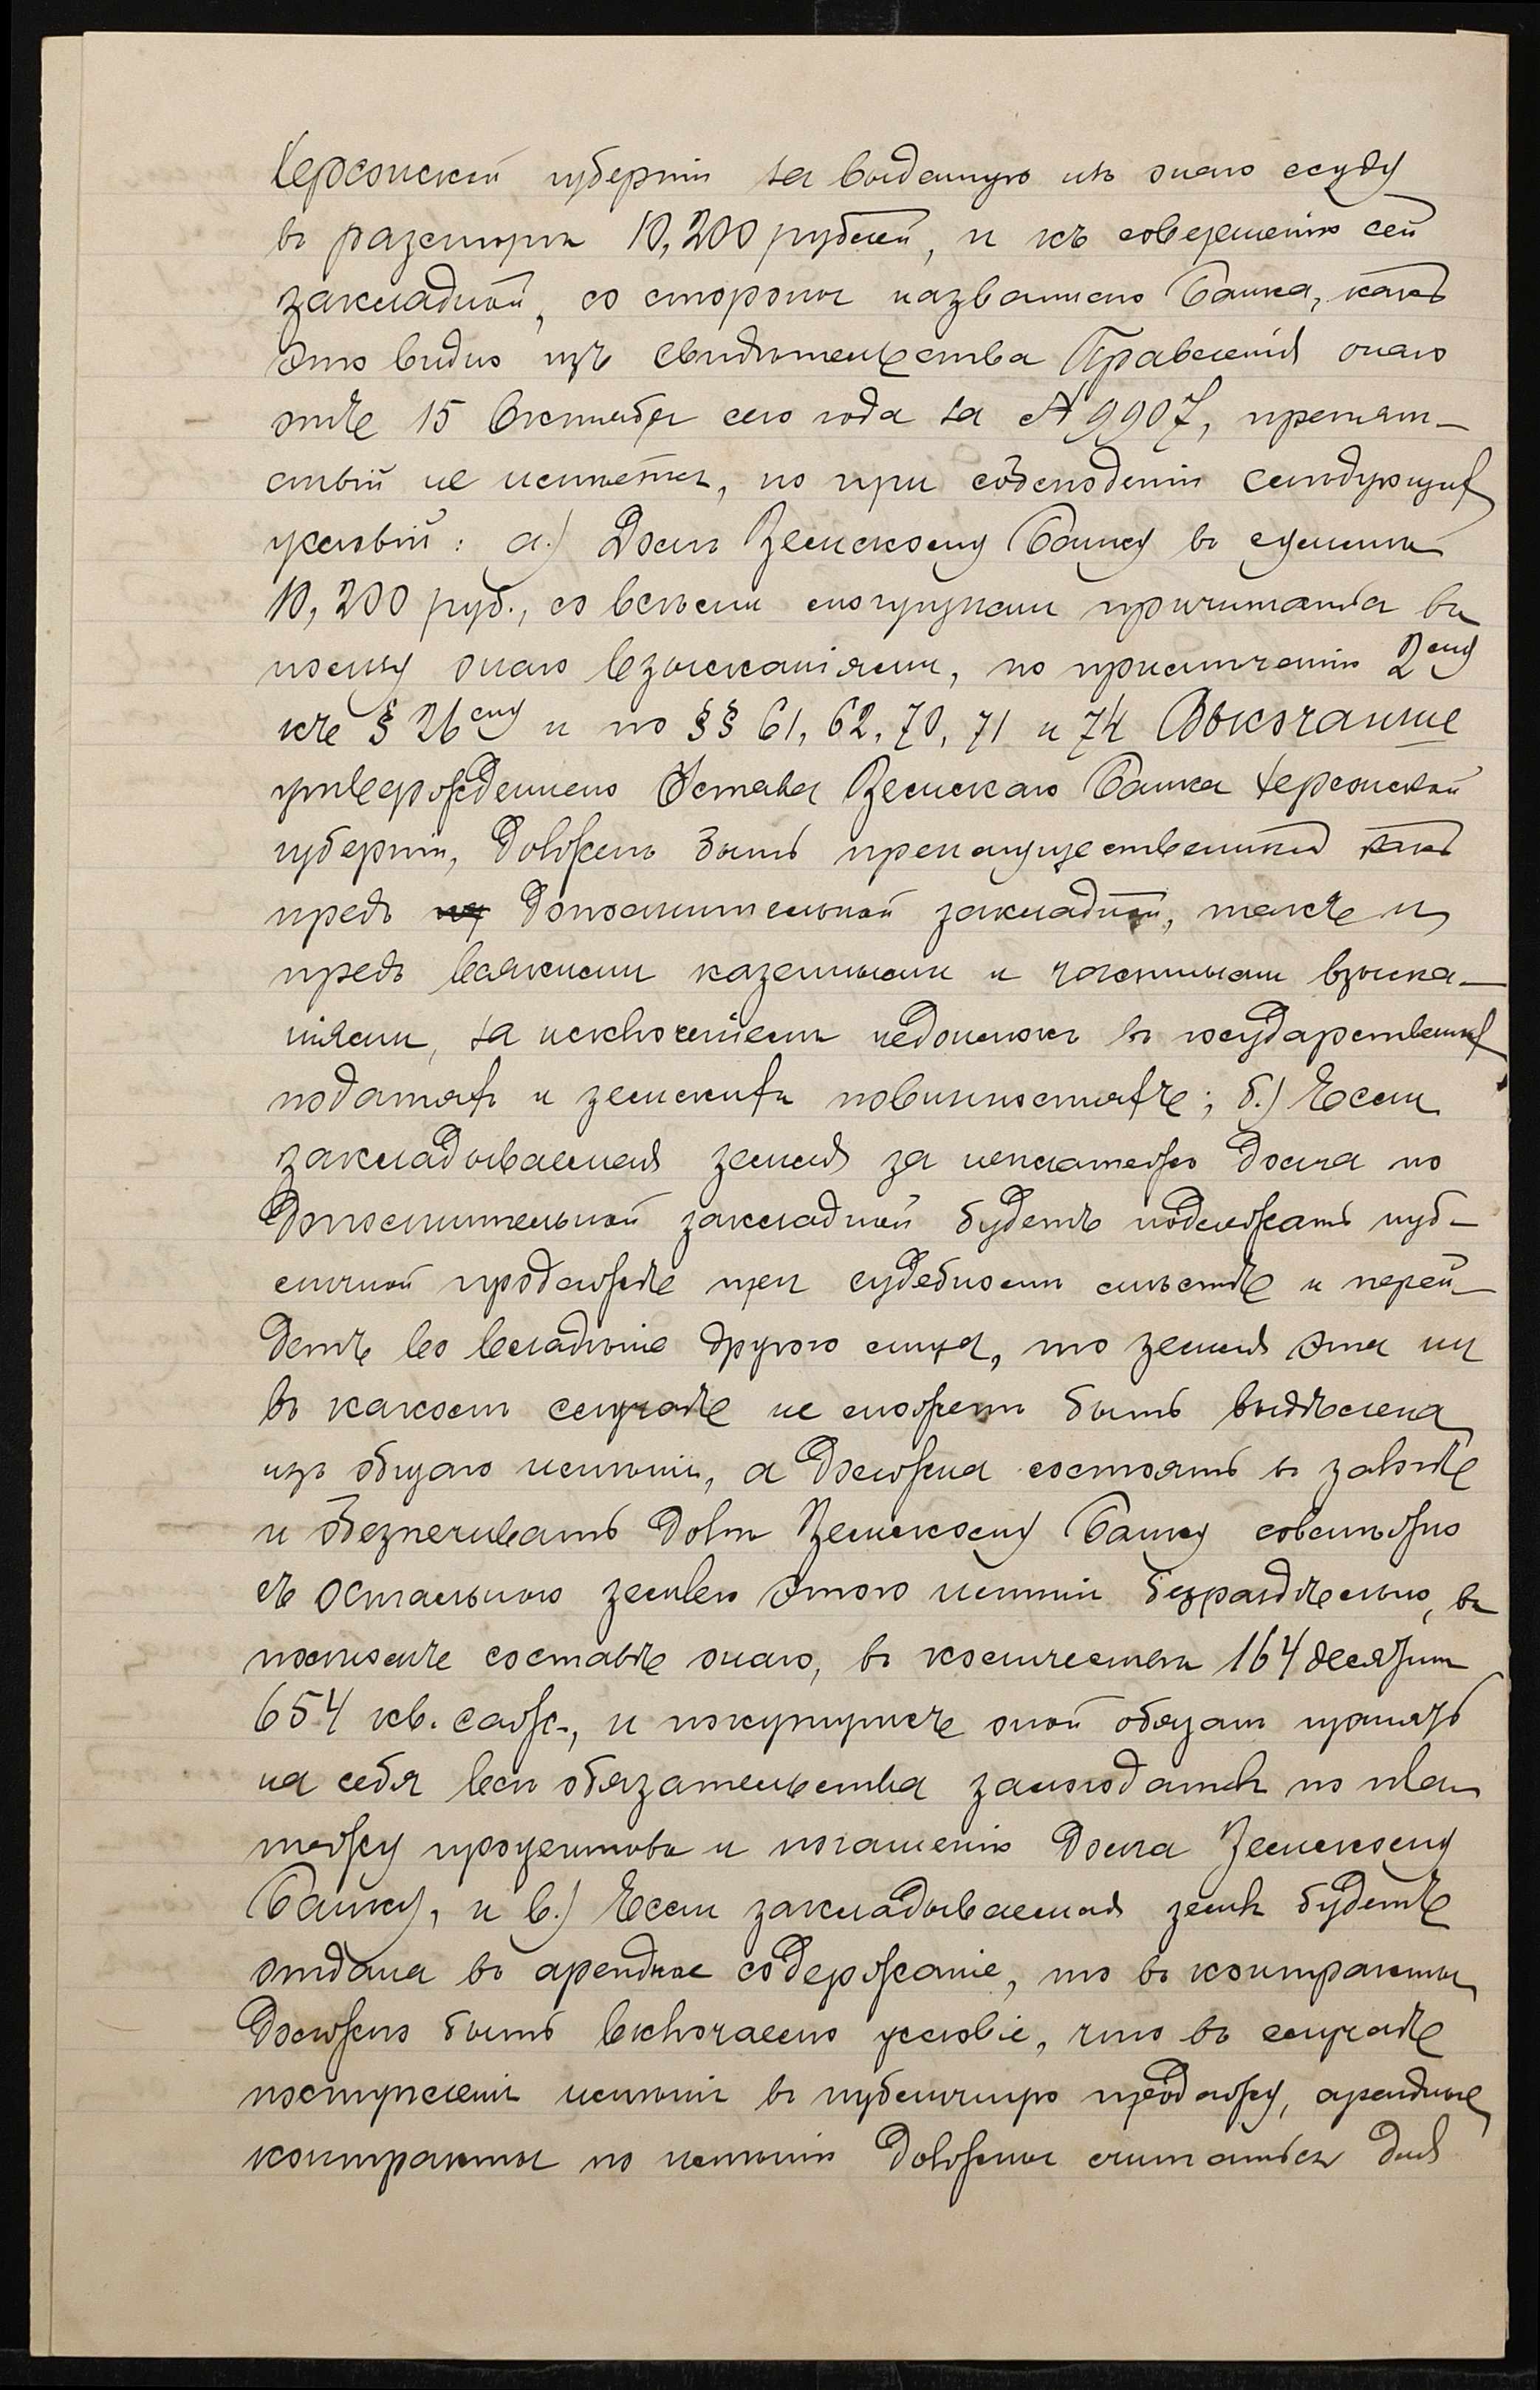 Херсонской губерніи за выданную изъ онаго ссуду
въ размѣрѣ 10,200 рублей, и къ совершенію сей
закладной, со стороны названнаго Банка, какъ
это видно изъ свидѣтельства Правленія онаго
отъ 15 Октября сего года за № 9907, препят–
ствій не имѣется, но при соблюденіи слѣдующихъ
условій: а.) Долгъ Земскому Банку въ суммѣ
10,200 руб., со всѣми могущими причитаться въ
пользу онаго взысканіями, по примѣчанію 2ому
къ § 26ому и по §§ 61, 62, 70, 71 и 74 Высочайше
утвержденнаго Устава Земскаго Банка Херсонской
губерніи, долженъ быть преимущественнымъ какъ
предъ дополнительной закладной, такъ и
предъ всякими казенными и частными взыска–
ніями, за исключеніемъ недоимокъ въ государственныхъ
податяхъ и земскихъ повинностяхъ; б.) Если
закладываемая земля за неплатежъ долга по
дополнительной закладной будетъ подлежать пуб–
личной продажѣ при судебномъ мѣстѣ и перей–
детъ во владѣніе другого лица, то земля эта ни
въ какомъ случаѣ не можетъ быть выдѣлена
изъ общаго имѣнія, а должна состоять въ залогѣ
и обезпечивать долгъ Земскому Банку совмѣстно
съ остальною землею этого имѣнія безраздѣльно, въ
полномъ составѣ онаго, въ количествѣ 164 десятинъ
654 кв. саж., и покупщикъ оной обязанъ принять
на себя всѣ обязательства залогодателя по пла–
тежу процентовъ и погашенію долга Земскому
Банку, и в.) Если закладываемая земля будетъ
отдана въ арендное содержаніе, то въ контрактѣ
должно быть включаемо условіе, что въ случаѣ
поступленія имѣнія въ публичную продажу, арендные
контракты по имѣнію должны считаться для